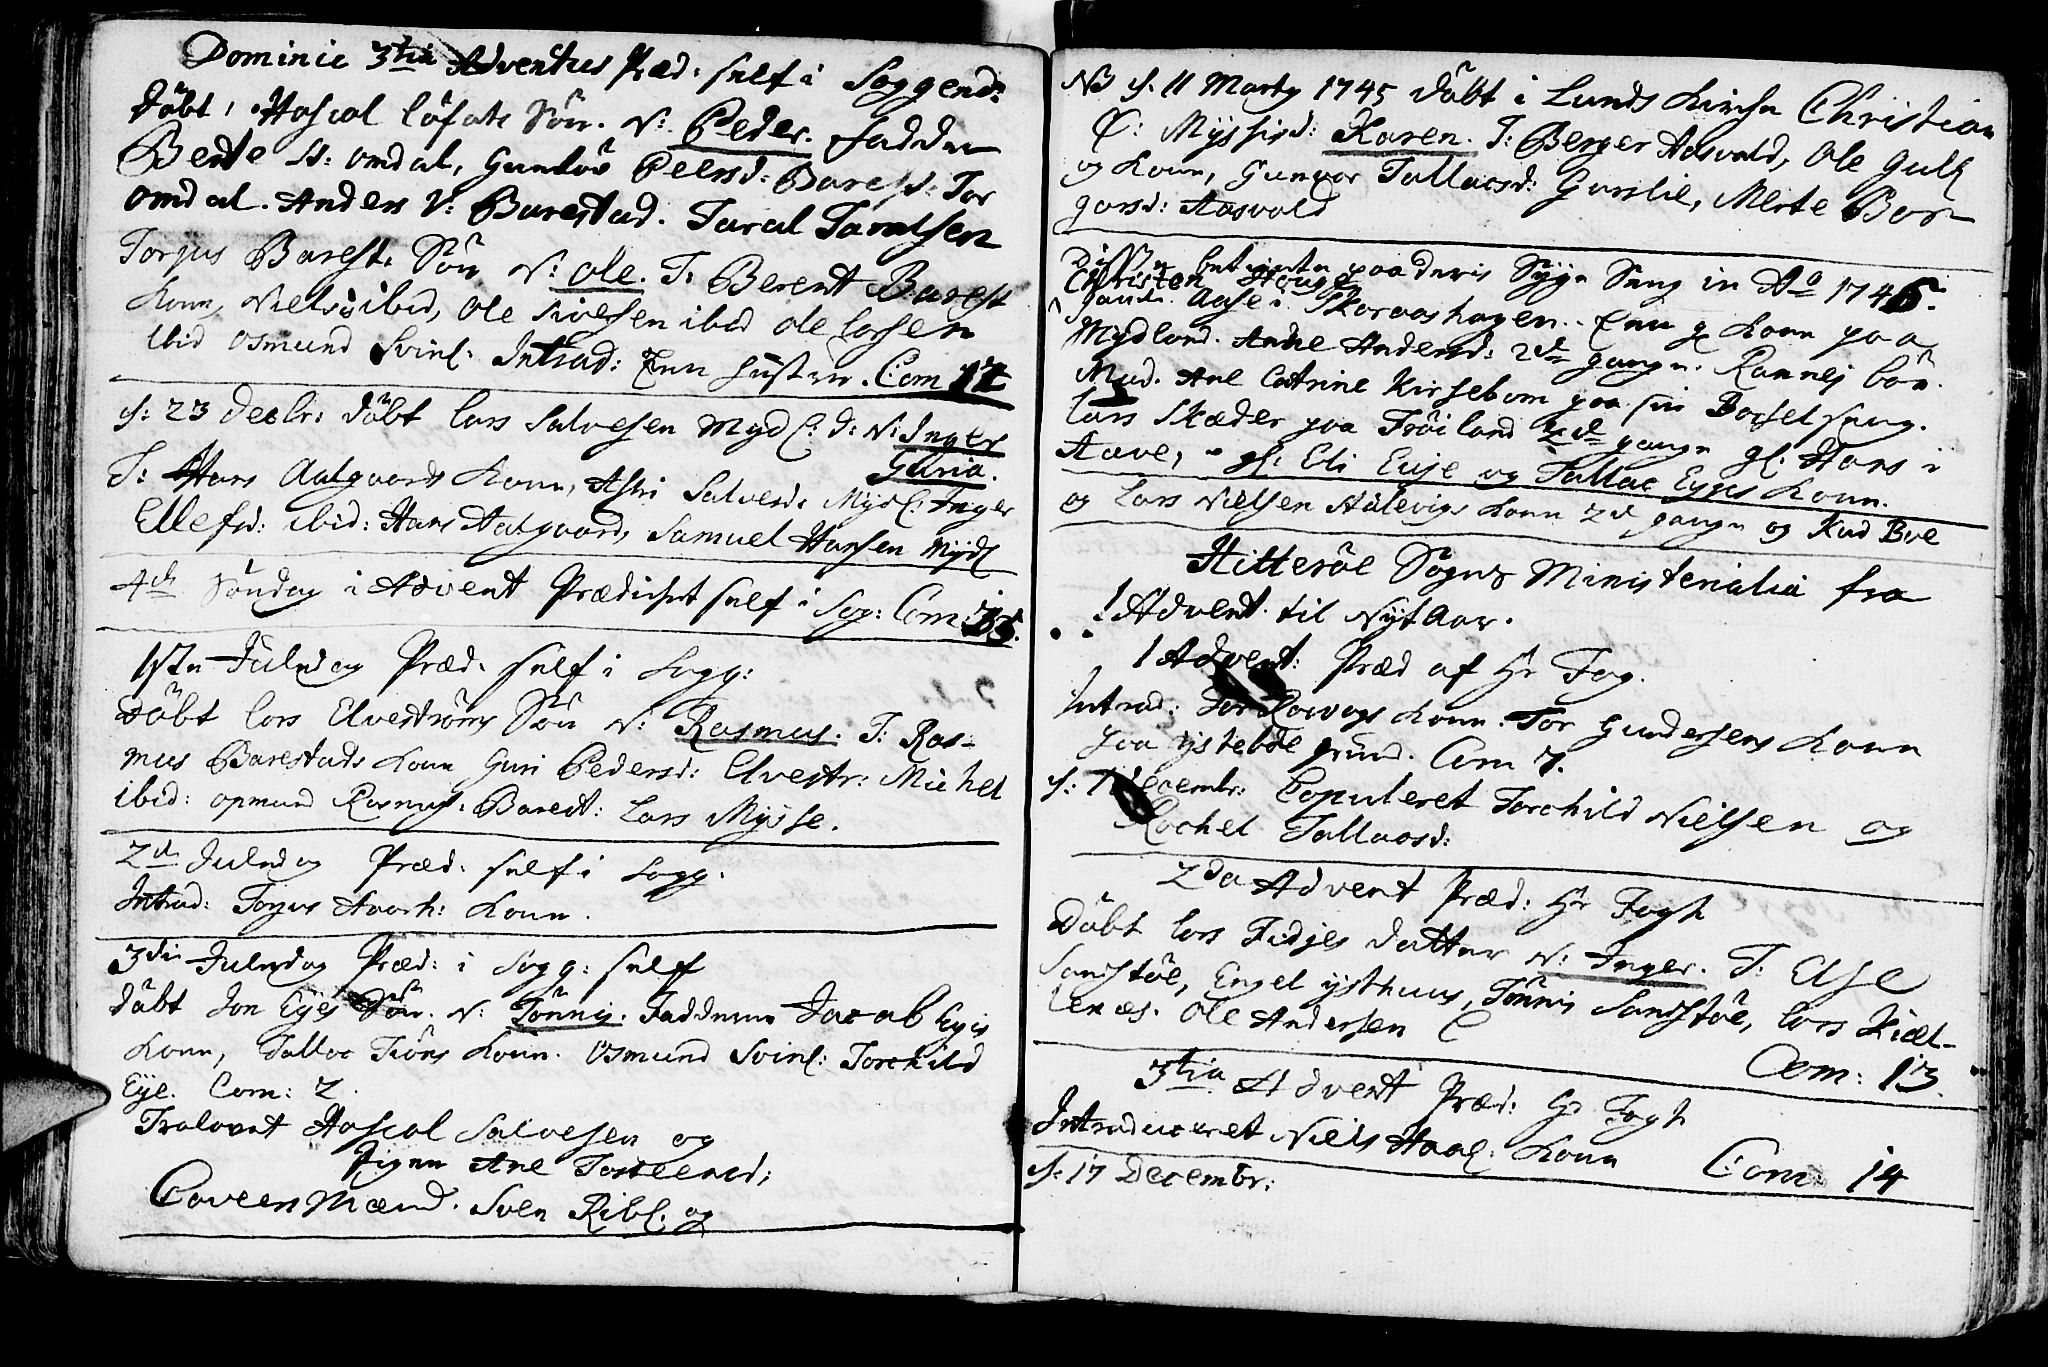 Dominic 3tia Adventus Præd: self i Soggend:
döbt, Hascal Löfots Sön. N: Peder. Fadder
Bente S: omdal, Gunlöv Peersd: Barest: Tor
omdal. Anders V: Barestad. Taral Taralsen
Torjus Barest: Sön N: Ole. T: Berent Barest
Kone, Niels ibid, Ole Siversen ibid Ole Larsen
ibid Osmund Svinl: Introd: Enn Hustru. Com 17
d: 23 Decbr: döbt Lars Salvesen Mydl: d: N: Inger
Guria.
T: Hans Aalgaards Kone, Asbi Salvesd: Mydl: Inger
Ellefsd: ibid: Hans Aalgaard, Samuel Hansen Mydl
4de Söndag i Advent Prædichet self i Sog: Com: 15.
1ste Juledag Præd. self i Sogg:
Döbt Lars Elvestrøms Sön N: Rasmus. T: Ras-
mus Barestads Kone Guri Pedersd: Elvestr: Michel
ibid: Opmund Rasmus: Barest: Lars Mysse.
2de Juledag Præd: self i Sogg.
Introd: Torjus Haarh: Kone.
3die Juledag Præd: i Sogg: self
Döbt Jon Eyes Sön. N: Tönnis. Fadderne Jacob Eyes
Kone, Tallac Tiöns Kone. Osmund Svinl: Torchild
Eye. Com: 2.
Trolovet Hascal Salvesen og
Pigen Ane Tosteensd:
Caveersmænd. Sven Ribl: og
NB d. 11 Marty 1745 döbt i Lunds Kirche Christian
C: Myssisd: Karen. T: Berger Aasvold, Ole Gulf
og Kone, Gunvor Tallacsd: Gurslie, Merte Bor-
garsd: Aasvold
Disse betjente paa deris Syge Seng in Ao 1746.
Christen Houge
Aase i Skaraashagen. Enn gl Kone paa
Mydland. Anne Andersd: 2de gange. Rannej bön.
Mud. Ane Catrine Kirsebom paa sin Barsel seng.
Lars Skæder paa Fröiland 2de gange gl: Hans i
Aave, gl: Eli Euje og Tallac Eyes Kone.
og Lars Nielsen Aalevigs Kone 2de gange og Knd Boe
Hitteröe Sogns Ministerialia fra
1 Advent til Nyt Aar.
1 Advent: Præd af Hr Fog.
Introd: Tor Kone. Tor Gundersens Kone
paa ysteböe grund. Com 7.
d: 1 Decembr: Copuleret Torchild Nielsen og
Rachel Tallacsd:
2da Advent Præd: Hr Fogh
Döbt Lars Fidjes datter N: Inger. T: Else
Sandstöe, Engel ysthuus, Tönnis Sandstöe, Lars Kiel-
lenæs. Ole Andersen C
Com: 13.
3tia Advent Præd: Hr Fogh
Introduceret Niels Haal: Kone Com: 14
d: 17 Decembr: